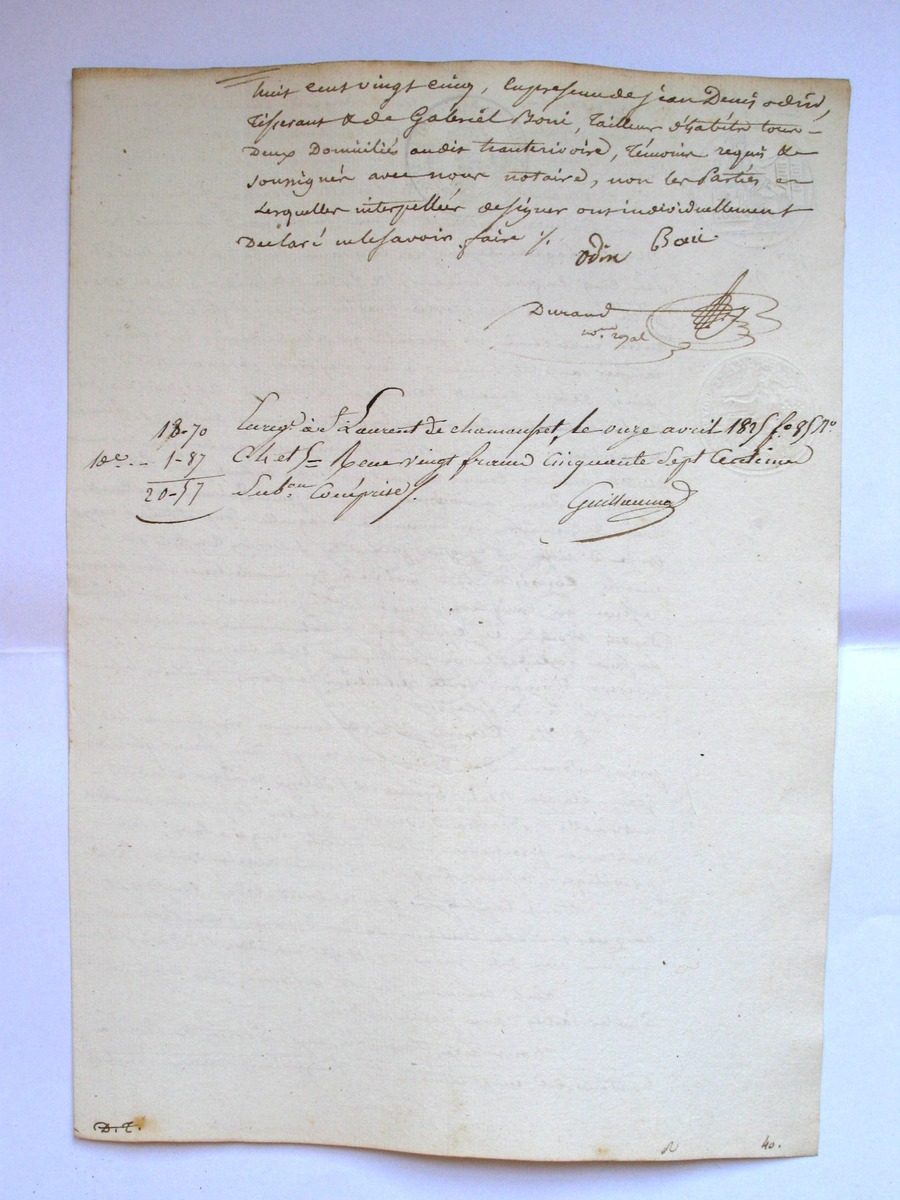 huit cent vingt cinq, En presence de jean Denis odin,
Tisserant & de Gabriël Boni, Tailleur d'habits tous-
Deux Domiciliés audit hauterivoire, Témoins requis &
soussignés avec nous notaire, non les Parties en
Lesquelles interpellées de signer ont individuellement
Declaré ne le savoir faire ./.
odin Boni
Durand
nore royal
Enregé à St Laurent de chamousset, le onze avril 1825 fo 85 Ro
18-70
10e. - 1-87
Reçu vingt francs Cinquante Sept Centimes
20-57
Subon Comprise.
Guillaumod
D.T.
40.